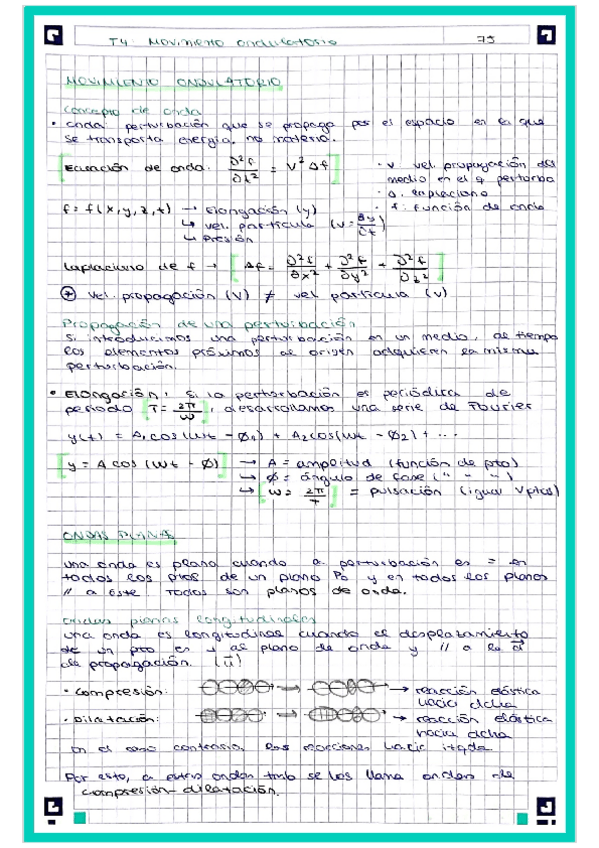 T4: Movimiento ondulatorio 75
MOVIMIENTO ONDULATORIO
Concepto de onda
• Onda: perturbación que se propaga por el espacio en la que
se transporta energía, no materia.
Ecuación de onda: ∂²f/∂t² = V² Δf
· v: vel. propagación del
medio en el q perturba
· Δ: laplaciano
· f: función de onda
f = f(x, y, z, t) → Elongación (y)
↳ vel. partícula (v = ∂y/∂t)
↳ Presión
Laplaciano de f → Δf = ∂²f/∂x² + ∂²f/∂y² + ∂²f/∂z²
vel. propagación (V) ≠ vel partícula (v)
Propagación de una perturbación
Si introducimos una perturbación en un medio, al tiempo
los elementos próximos al origen adquieren la misma
perturbación.
• Elongación: si la perturbación es periódica de
periodo T = 2π/ω, desarrollamos una serie de Fourier
y(t) = A₁ cos(ωt - Ø₁) + A₂ cos(ωt - Ø₂) + ...
y = A cos (ωt - Ø) → A = amplitud (función de pto)
↳ Ø = ángulo de fase (" " ")
↳ ω = 2π/T = pulsación (igual ∀ptos)
ONDAS PLANAS
Una onda es plana cuando la perturbación es = en
todos los ptos de un plano P₀ y en todos los planos
// a éste. Todos son planos de onda.
Ondas planas longitudinales
Una onda es longitudinal cuando el desplazamiento
de un pto es ⊥ al plano de onda y // a la d
de propagación. (u⃗)
· Compresión: → → reacción elástica
hacia dcha
· Dilatación: → → reacción elástica
hacia dcha
En el caso contrario, las reacciones hacia izqda
Por esto, a estas ondas tmb se las llama ondas de
compresión-dilatación.